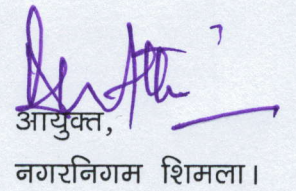 आयुक्त,
नगरनिगम शिमला।